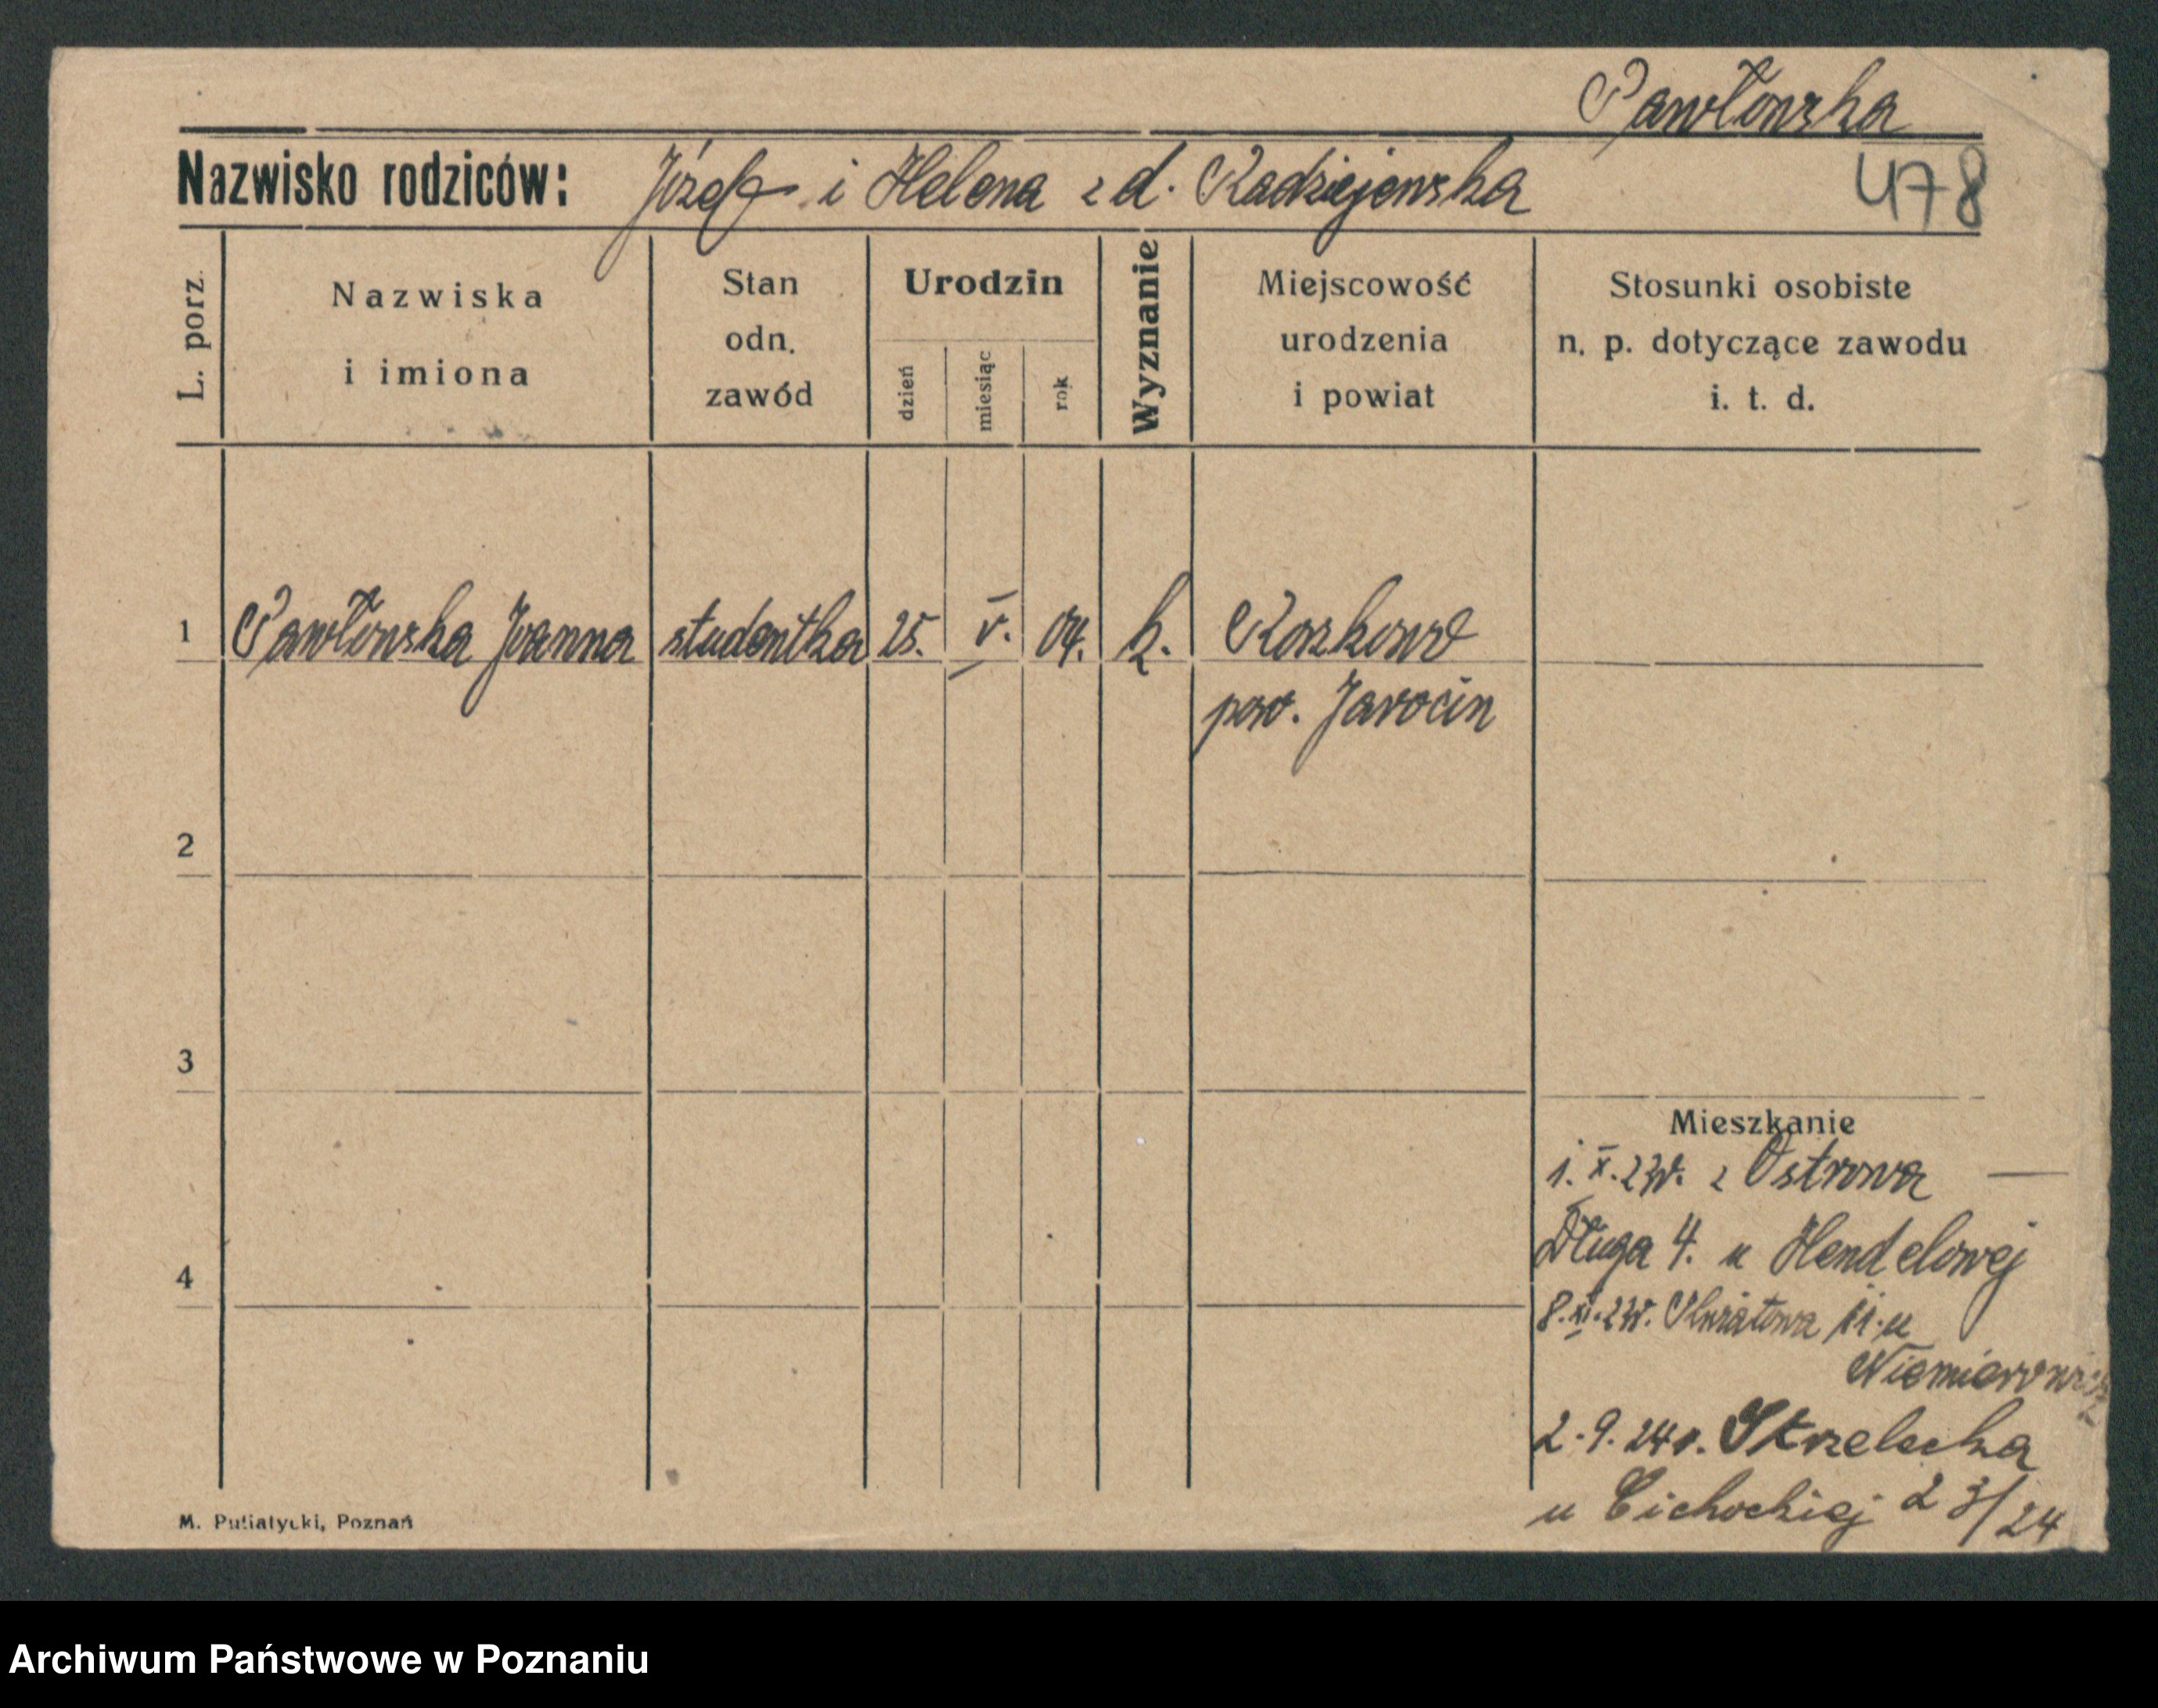 Pawłowska
Nazwisko rodziców: Józef i Helena z d. Radziejewska
478
L. porz.
Nazwiska
i imiona
Stan
odn.
zawód
Urodzin
dzień
miesiąc
rok
Wyznanie
Miejscowość
urodzenia
i powiat
Stosunki osobiste
n. p. dotyczące zawodu
i. t. d.
1 Pawłowska Joanna studentka 25. V. 04. k. Roszkowo
pow. Jarocin
2
3
4
Mieszkanie
1. X. 23r. z Ostrowa
Długa 4. u Hendelowej
8. XI. 23r. Kwiatowa 11. u
2. 9. 24r. Strzelecka
u Cichockiej 2 3/24
M. Putiatycki, Poznań
Archiwum Państwowe w Poznaniu